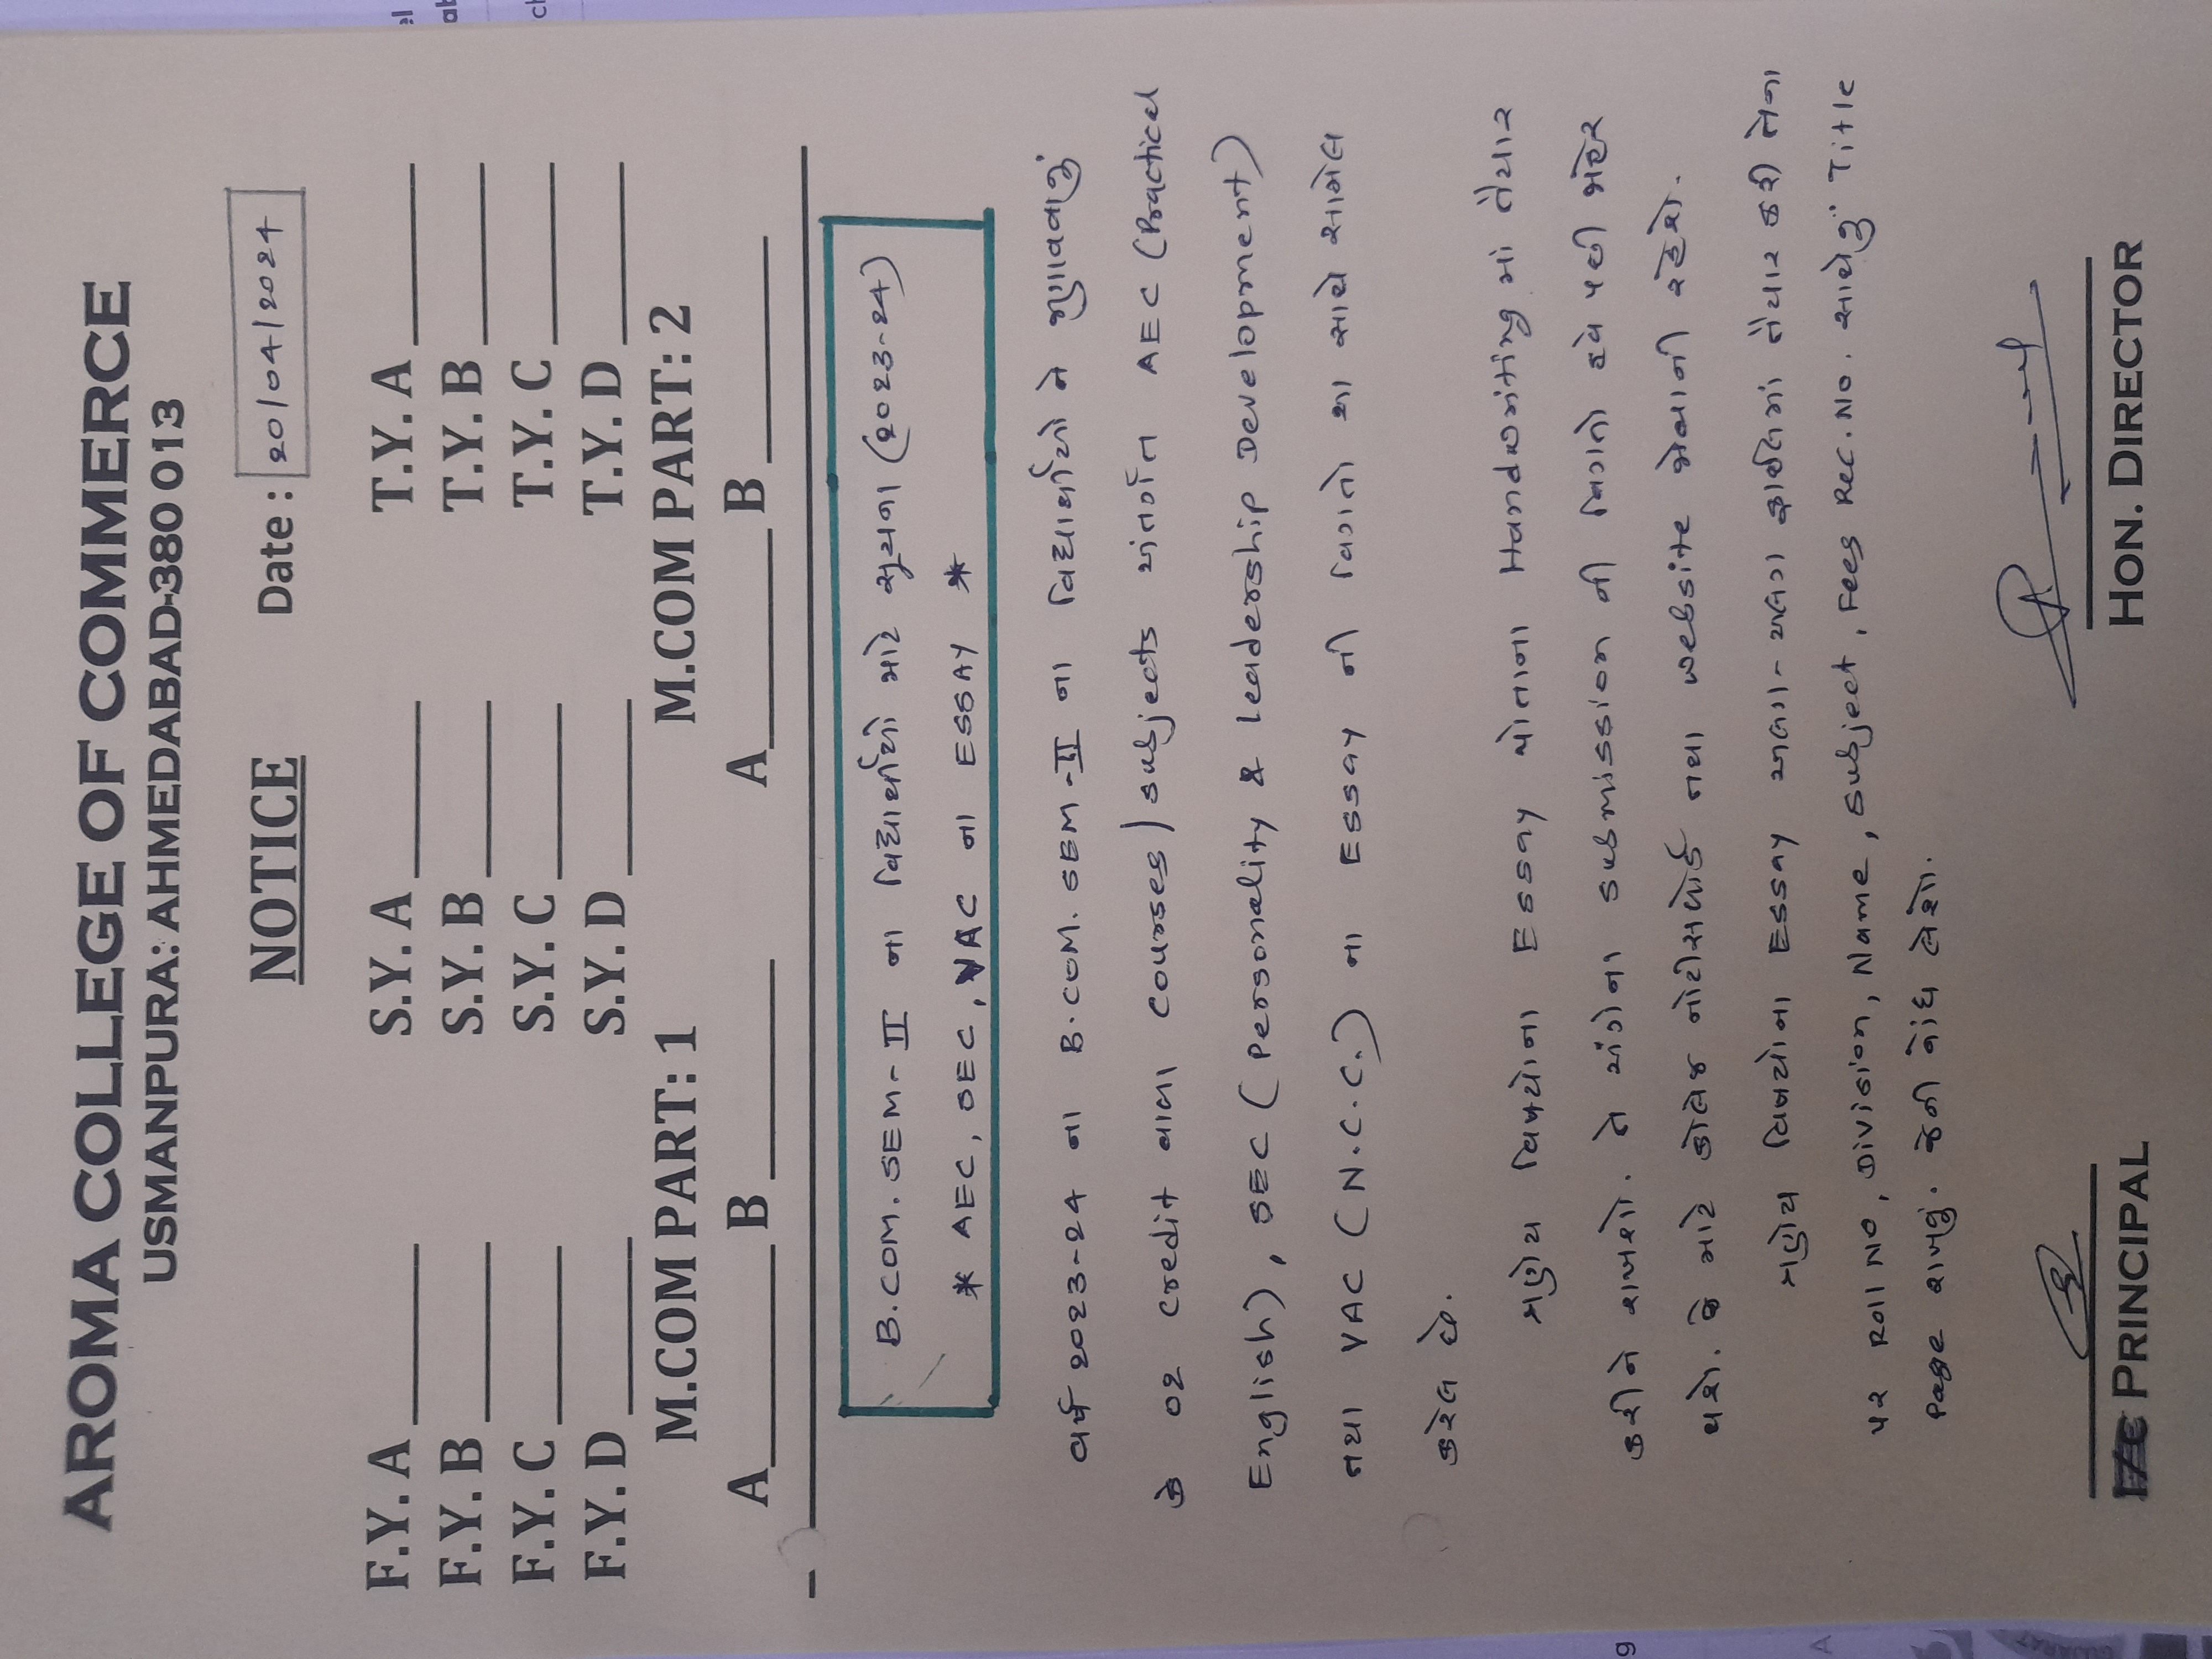 AROMA COLLEGE OF COMMERCE
USMANPURA: AHMEDABAD-380 013
NOTICE Date : 20/04/2024
F.Y. A ______ S.Y. A ______ T.Y. A ______
F.Y. B ______ S.Y. B ______ T.Y. B ______
F.Y. C ______ S.Y. C ______ T.Y. C ______
F.Y. D ______ S.Y. D ______ T.Y. D ______
M.COM PART: 1 M.COM PART: 2
A ______ B ______ A ______ B ______
B.COM. SEM-II ના વિદ્યાર્થીઓ માટે સૂચના (2023-24)
* AEC, SEC, VAC ના ESSAY *
વર્ષ 2023-24 ના B.COM. SEM-II ના વિદ્યાર્થીઓ ને જણાવવાનું
કે 02 credit વાળા courses) subjects અંતર્ગત AEC (Practical
English), SEC (Personality & Leadership Development)
તથા VAC (N.C.C.) ના Essay ની વિગતો આ સાથે સામેલ
કરેલ છે.
ત્રણેય વિષયોના Essay પોતાના Handwriting માં તૈયાર
કરીને રાખશો. તે અંગેના submission ની વિગતો હવે પછી જાહેર
થશે. જે માટે કોલેજ નોટીસબોર્ડ તથા website જોવાની રહેશે.
ત્રણેય વિષયોના Essay અલગ-અલગ ફાઈલમાં તૈયાર કરી તેના
પર Roll No, Division, Name, subject, Fees Rec. No. સાથેનું Title
Page રાખવું. જેની નોંધ લેશો.
PRINCIPAL HON. DIRECTOR